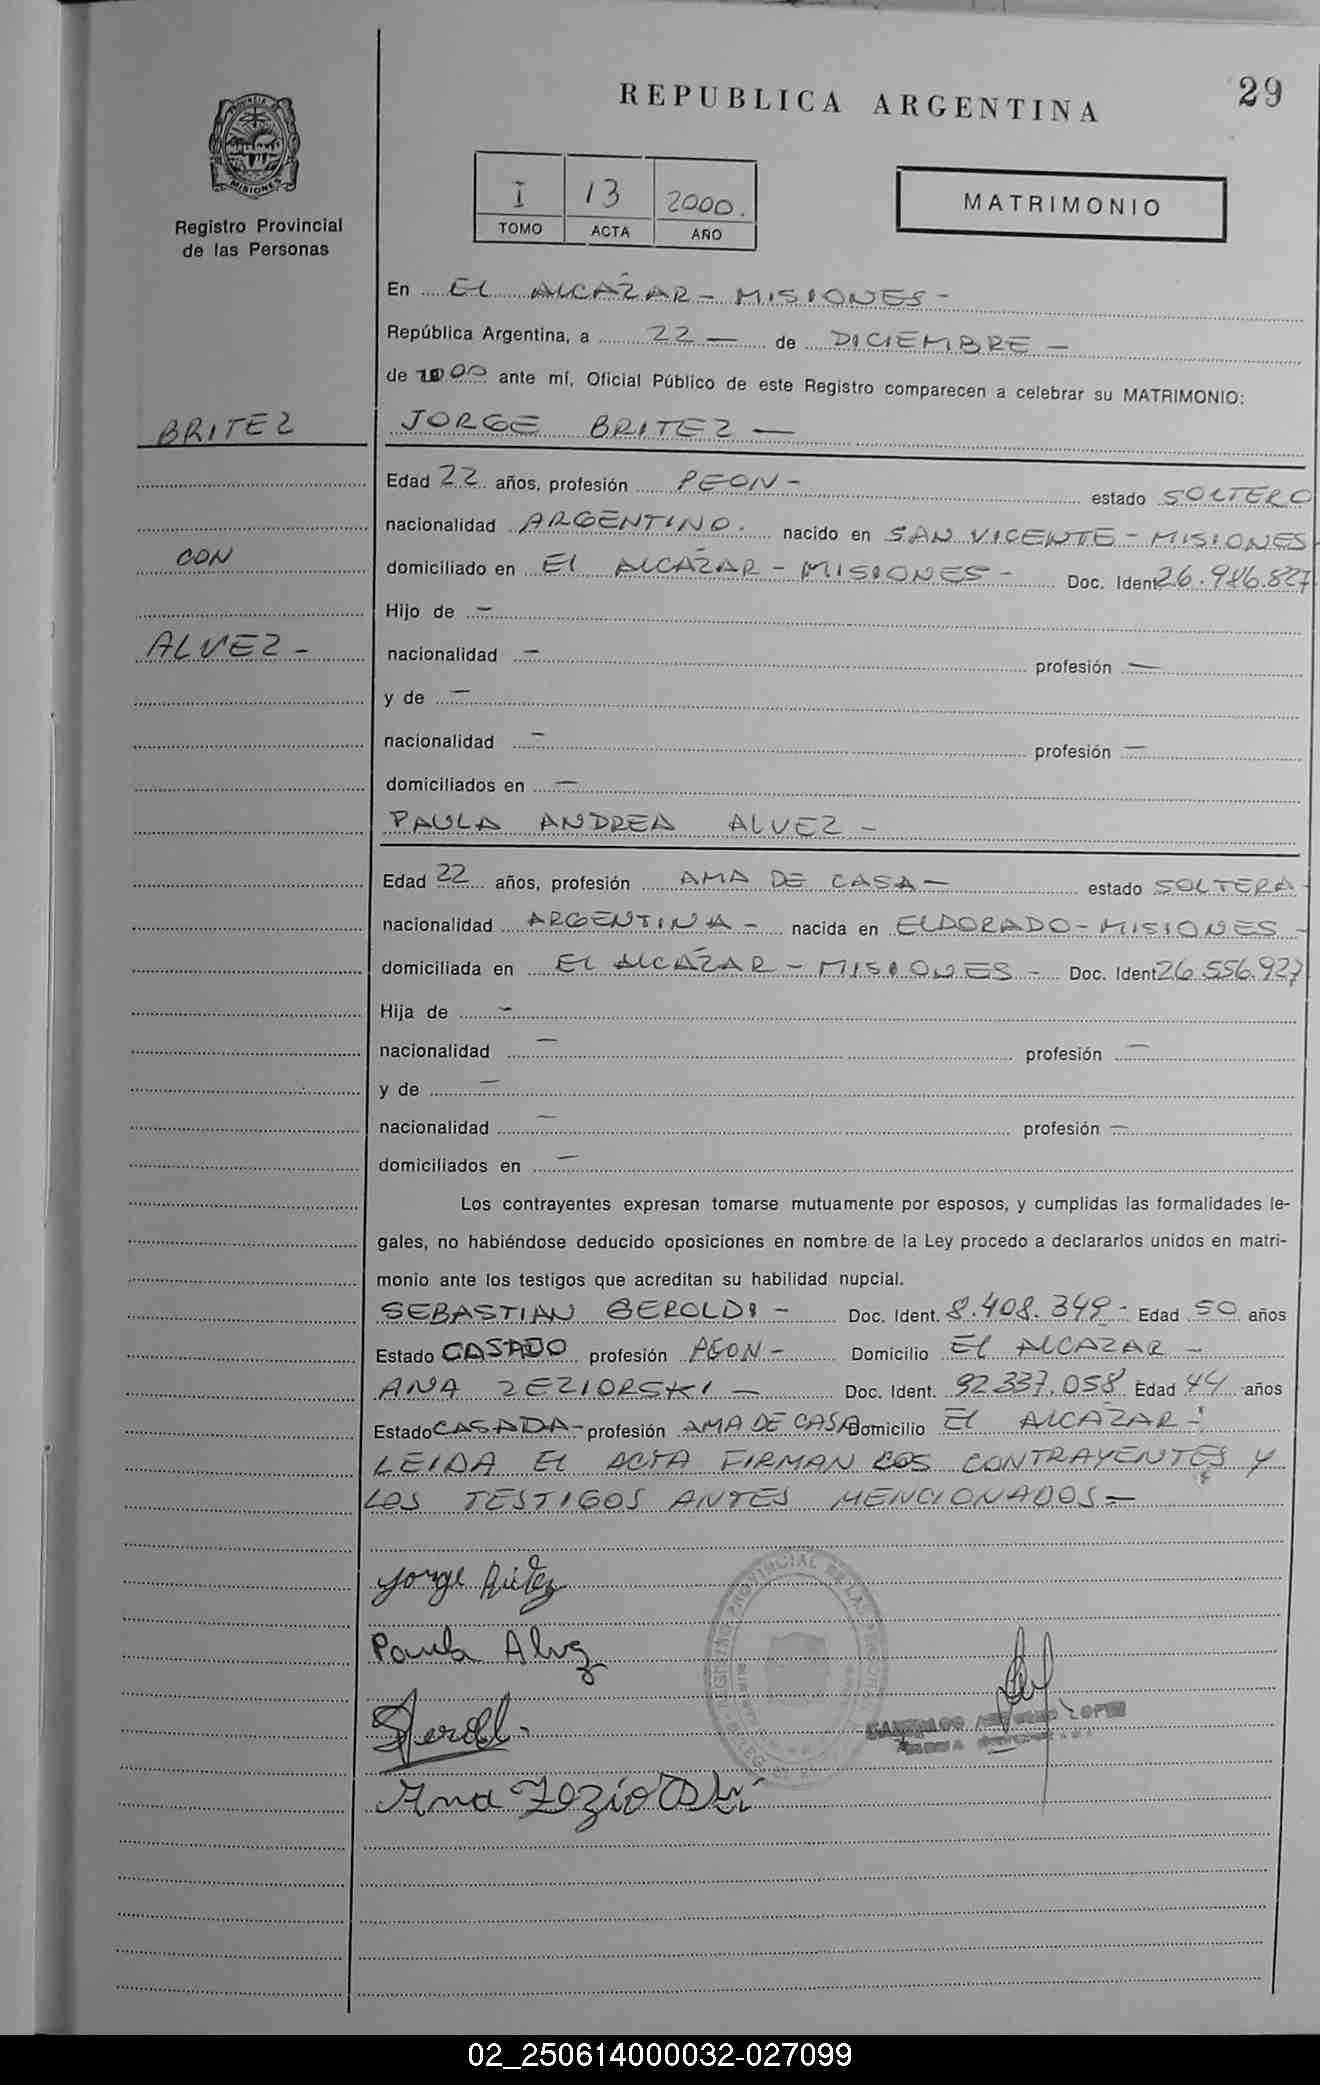 REPUBLICA ARGENTINA
29
PROVINCIA DE
MISIONES
Registro Provincial
de las Personas
I 13 2000.
TOMO ACTA AÑO
MATRIMONIO
En EL ALCÁZAR - MISIONES -
República Argentina, a 22 — de DICIEMBRE -
de 2000 ante mí, Oficial Público de este Registro comparecen a celebrar su MATRIMONIO:
BRITEZ
JORGE BRITEZ —
Edad 22 años, profesión PEON - estado SOLTERO
nacionalidad ARGENTINO. nacido en SAN VICENTE - MISIONES
CON
domiciliado en El ALCÁZAR - MISIONES - Doc. Ident 26.986.827
Hijo de -
ALVEZ -
nacionalidad - profesión —
y de —
nacionalidad - profesión —
domiciliados en —
PAULA ANDREA ALVEZ -
Edad 22 años, profesión AMA DE CASA - estado SOLTERA -
nacionalidad ARGENTINA - nacida en ELDORADO - MISIONES -
domiciliada en El ALCÁZAR - MISIONES - Doc. Ident 26.556.927
Hija de -
nacionalidad — profesión —
y de —
nacionalidad — profesión —
domiciliados en —
Los contrayentes expresan tomarse mutuamente por esposos, y cumplidas las formalidades le-
gales, no habiéndose deducido oposiciones en nombre de la Ley procedo a declararlos unidos en matri-
monio ante los testigos que acreditan su habilidad nupcial.
SEBASTIAN GEROLDI - Doc. Ident. 8.408.349 - Edad 50 años
Estado CASADO profesión PEON - Domicilio El ALCAZAR -
ANA ZEZIORSKI - Doc. Ident. 92.337.058 Edad 44 años
Estado CASADA - profesión AMA DE CASA Domicilio El ALCAZAR -
LEIDA El ACTA FIRMAN LOS CONTRAYENTES Y
LOS TESTIGOS ANTES MENCIONADOS =
Jorge Britez
Paula Alvez
Geroldi
Ana Zeziorski
REGISTRO PROVINCIAL DE LAS PERSONAS
LOPEZ
02_250614000032-027099